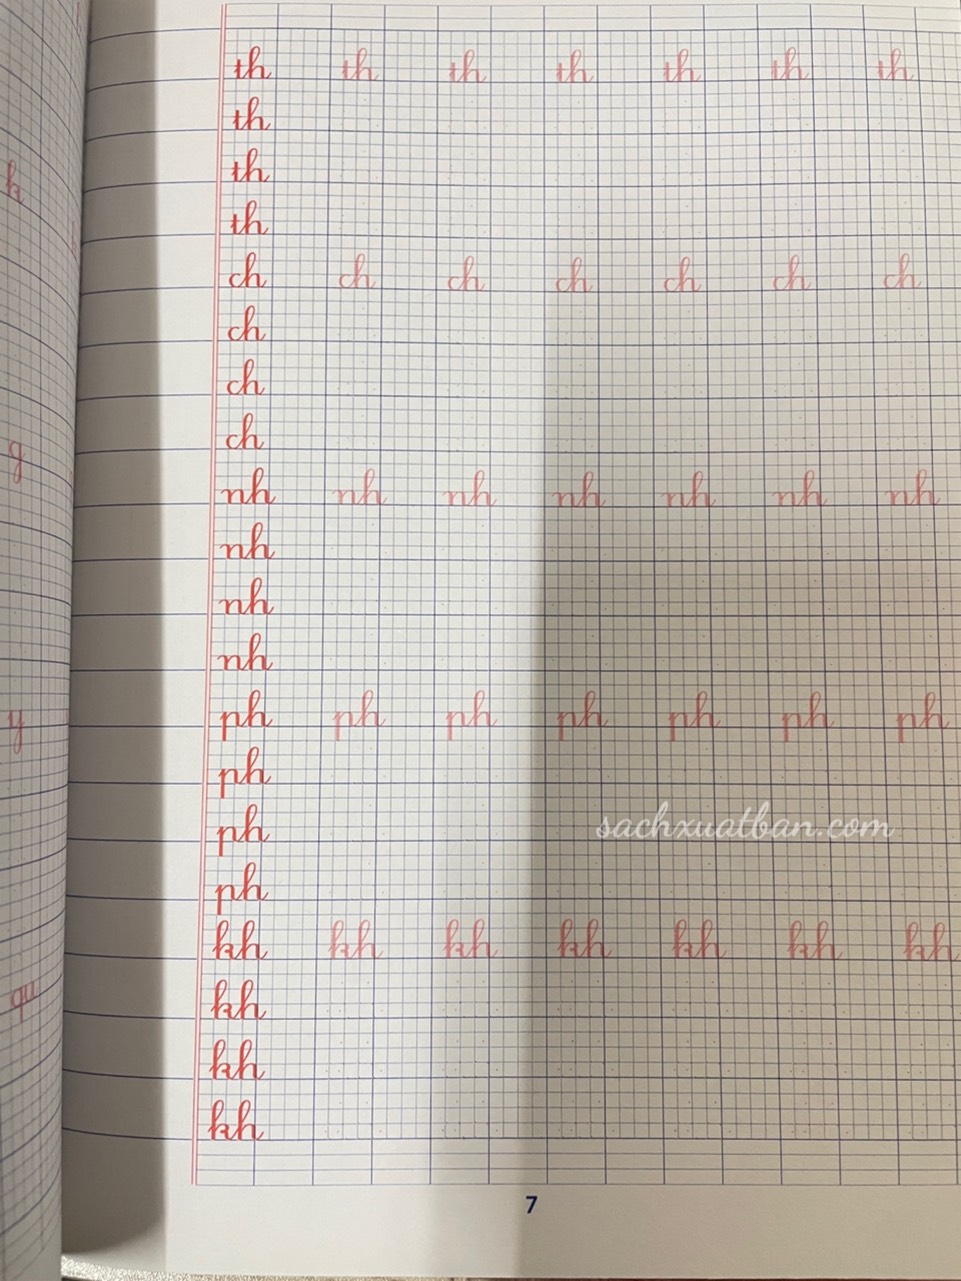 th th th th th th th
th
th
th
ch ch ch ch ch ch ch
ch
ch
ch
nh nh nh nh nh nh nh
nh
nh
nh
ph ph ph ph ph ph ph
ph
ph
ph
kh kh kh kh kh kh kh
kh
kh
kh
7
k
g
y
qu
sachxuatban.com